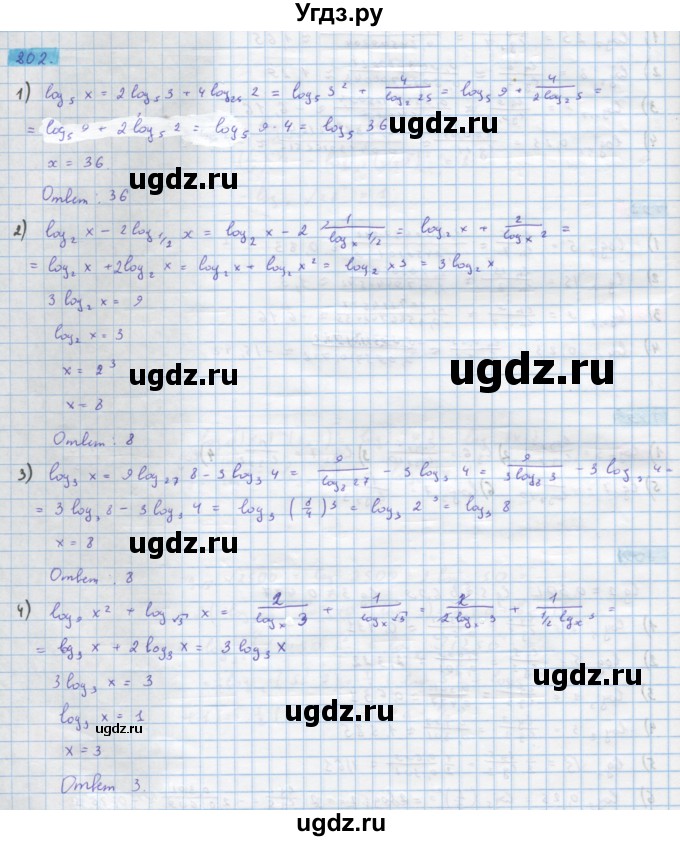 Угдз.ру
202.
1) log₅ x = 2 log₅ 3 + 4 log₂₅ 2 = log₅ 3² + 4/log₂ 25 = log₅ 9 + 4/(2 log₂ 5) =
= log₅ 9 + 2 log₅ 2 = log₅ 9·4 = log₅ 36
ugdz.ru
x = 36.
ugdz.ru
Ответ: 36
2) log₂ x − 2 log₁/₂ x = log₂ x − 2 1/(logₓ 1/2) = log₂ x + 2/(logₓ 2) =
= log₂ x + 2 log₂ x = log₂ x + log₂ x² = log₂ x³ = 3 log₂ x
3 log₂ x = 9
log₂ x = 3
x = 2³
ugdz.ru
ugdz.ru
x = 8
Ответ: 8
3) log₃ x = 9 log₂₇ 8 − 3 log₃ 4 = 9/(log₈ 27) − 3 log₃ 4 = 9/(3 log₈ 3) − 3 log₃ 4 =
= 3 log₃ 8 − 3 log₃ 4 = log₃ (8/4)³ = log₃ 2³ = log₃ 8
x = 8
ugdz.ru
ugdz.ru
Ответ: 8
4) log₉ x² + log√₃ x = 2/(logₓ 3) + 1/(logₓ √3) = 2/(2 logₓ 3) + 1/(1/2 logₓ 3) =
= log₃ x + 2 log₃ x = 3 log₃ x
3 log₃ x = 3
log₃ x = 1
ugdz.ru
ugdz.ru
ugdz.ru
x = 3
Ответ 3.
ugdz.ru